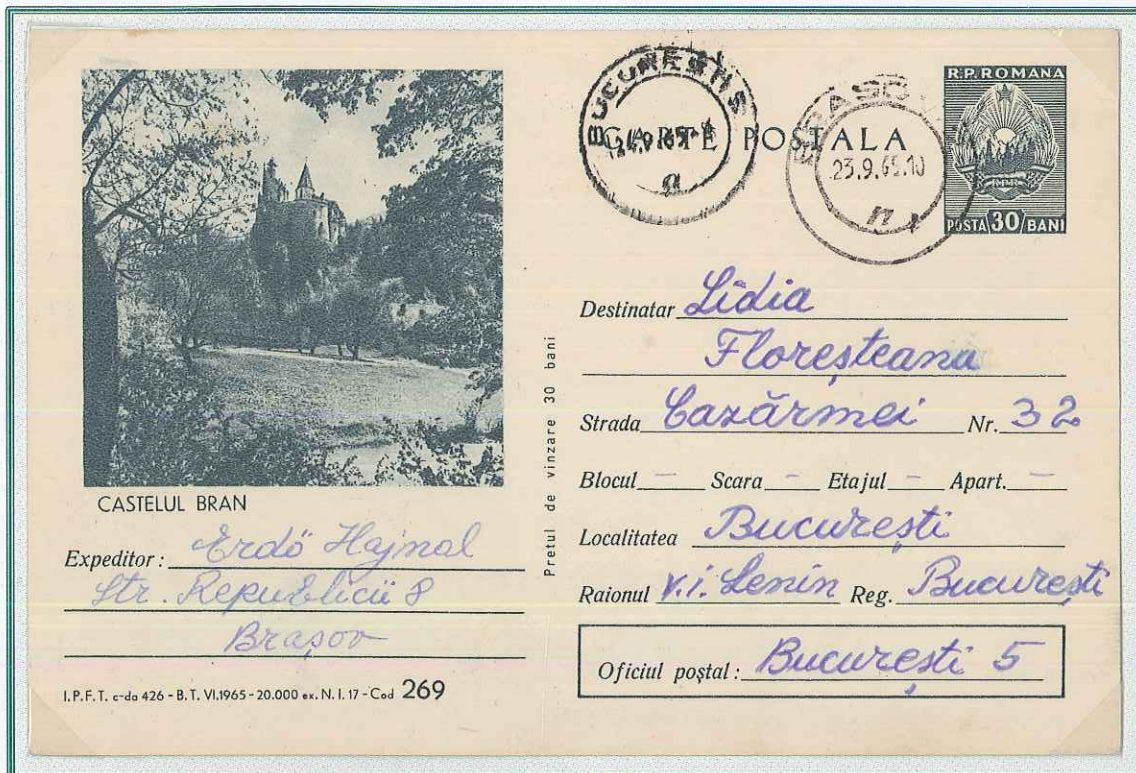 CASTELUL BRAN
Expeditor: Erdö Hajnal
Str. Republicii 8
Brașov
I.P.F.T. c-da 426 - B.T. VI.1965 - 20.000 ex. N.I. 17 - Cod 269
Pretul de vinzare 30 bani
BUCURESTI
CARTE POSTALA
BRASOV
23.9.65.10
R.P.ROMANA
RPR
POSTA 30 BANI
Destinatar Lidia
Floreșteanu
Strada Cazărmei Nr. 32
Blocul — Scara — Etajul — Apart. —
Localitatea București
Raionul V.i. Lenin Reg. București
Oficiul poștal: București 5